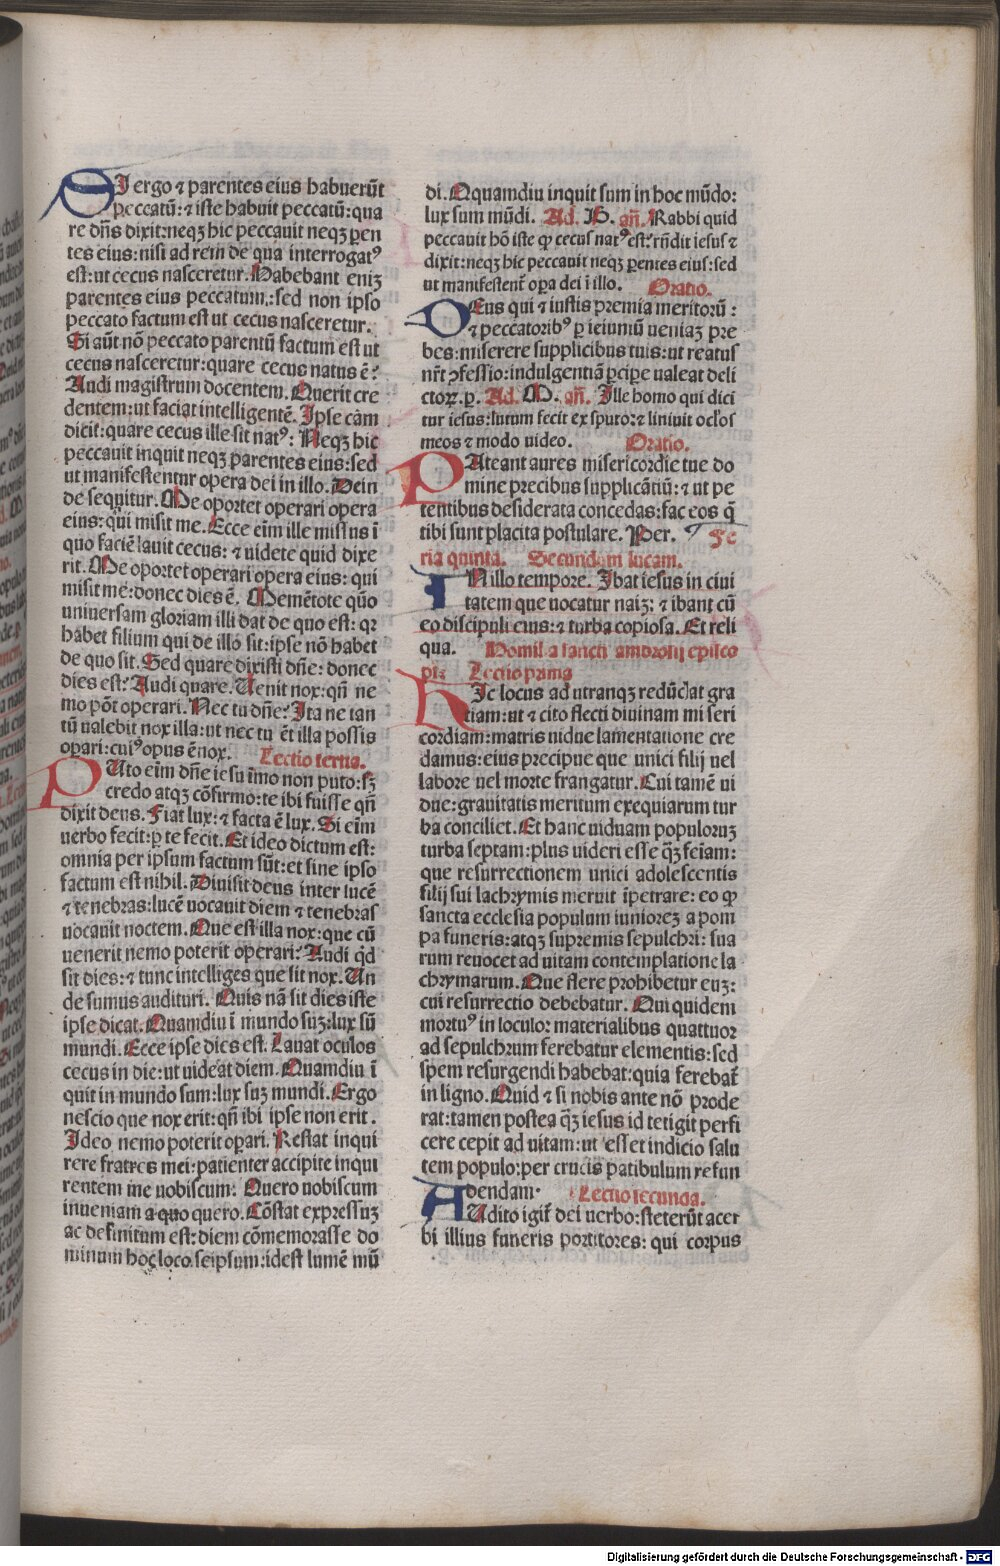 SI ergo ⁊ parentes eius habuerūt
peccatū: ⁊ iste habuit peccatū: qua
re dn̄s dixit: neqꝫ hic peccauit neqꝫ ꝑen
tes eius: nisi ad rem de qua interrogatꝰ
est: ut cecus nasceretur. Habebant enīꝫ
parentes eius peccatum: sed non ipso
peccato factum est ut cecus nasceretur.
Si aūt nō peccato parentū factum est ut
cecus nasceretur: quare cecus natus ē?
Audi magistrum docentem. Querit cre
dentem: ut faciat intelligentē. Ipse cām
dicit: quare cecus ille sit natꝰ: Neqꝫ hic
peccauit inquit neqꝫ parentes eius: sed
ut manifestentur opera dei in illo. Dein
de sequitur. Me oportet operari opera
eius: qui misit me. Ecce eīm ille missus ī
quo faciē lauit cecus: ⁊ uidete quid dixe
rit. Me oportet operari opera eius: qui
misit me: donec dies ē. Memētote qūo
uniuersam gloriam illi dat de quo est: qꝛ
habet filium qui de illo sit: ipse nō habet
de quo sit. Sed quare dixisti dn̄e: donec
dies est? Audi quare. Uenit nox: qn̄ ne
mo pōt operari. Nec tu dn̄e? Ita ne tan
tū ualebit nox illa: ut nec tu ēt illa possis
opari: cuiꝰ opus ē nox. Lectio tertia.
PUto eīm dn̄e iesu īmo non puto: sꝫ
credo atqꝫ cōfirmo: te ibi fuisse qn̄
dixit deus. Fiat lux: ⁊ facta ē lux. Si eīm
uerbo fecit: ꝑ te fecit. Et ideo dictum est:
omnia per ipsum factum sūt: et sine ipso
factum est nihil. Diuisit deus inter lucē
⁊ tenebras: lucē uocauit diem ⁊ tenebras
uocauit noctem. Que est illa nox: que cū
uenerit nemo poterit operari? Audi qd̄
sit dies: ⁊ tunc intelliges que sit nox. Un
de sumus audituri. Quis nā sit dies iste
ipse dicat. Quamdiu ī mundo suꝫ: lux sū
mundi. Ecce ipse dies est. Lauat oculos
cecus in die: ut uideat diem. Quamdiu ī
quit in mundo sum: lux suꝫ mundi. Ergo
nescio que nox erit: qn̄ ibi ipse non erit.
Ideo nemo poterit opari. Restat inqui
rere fratres mei: patienter accipite inqui
rentem me uobiscum: Quero uobiscum
inueniam a quo quero. Cōstat expressuꝫ
ac definitum est: diem cōmemorasse do
minum hoc loco seipsum: idest lumē mū
di. Qquamdiu inquit sum in hoc mūdo:
lux sum mūdi. Ad. B. an̄. Rabbi quid
peccauit hō iste ꝙ cecus natꝰ est? rn̄dit iesus ⁊
dixit: neqꝫ hic peccauit neqꝫ ꝑentes eius: sed
ut manifestent̄ oꝑa dei ī illo. Oratio.
DEus qui ⁊ iustis premia meritorū:
⁊ peccatoribꝰ ꝑ ieiuniū ueniaꝫ pre
bes: miserere supplicibus tuis: ut reatus
nr̄t ꝯfessio: indulgentiā ꝑcipe ualeat deli
ctoꝝ. ꝑ. Ad. M. an̄. Ille homo qui dici
tur iesus: lutum fecit ex sputo: ⁊ liniuit oclos
meos ⁊ modo uideo. Oratio.
PAteant aures misericordie tue do
mine precibus supplicātiū: ⁊ ut pe
tentibus desiderata concedas: fac eos q̄
tibi sunt placita postulare. Per. Fe
ria quinta. Secundum lucam.
IN illo tempore. Ibat iesus in ciui
tatem que uocatur naiꝫ: ⁊ ibant cū
eo discipuli eius: ⁊ turba copiosa. Et reli
qua. Homilia sancti ambrosij episco
pi: Lectio prima
HIc locus ad utranqꝫ redūdat gra
tiam: ut ⁊ cito flecti diuinam miseri
cordiam: matris uidue lamentatione cre
damus: eius precipue que unici filij uel
labore uel morte frangatur. Cui tamē ui
due: grauitatis meritum exequiarum tur
ba conciliet. Et hanc uiduam populoruꝫ
turba septam: plus uideri esse q̄ꝫ feīam:
que resurrectionem unici adolescentis
filij sui lachrymis meruit īpetrare: eo ꝙ
sancta ecclesia populum iunioreꝫ a pom
pa funeris: atqꝫ supremis sepulchri: sua
rum reuocet ad uitam contemplatione la
chrymarum. Que flere prohibetur euꝫ:
cui resurrectio debebatur. Qui quidem
mortuꝰ in loculo: materialibus quattuor
ad sepulchrum ferebatur elementis: sed
spem resurgendi habebat: quia ferebat̄
in ligno. Quid ⁊ si nobis ante nō prode
rat: tamen postea q̄ꝫ iesus id tetigit perfi
cere cepit ad uitam: ut esset indicio salu
tem populo: per crucis patibulum refun
dendam. Lectio secunda.
AUdito igit̄ dei uerbo: steterūt acer
bi illius funeris portitores: qui corpus
Digitalisierung gefördert durch die Deutsche Forschungsgemeinschaft - DFG